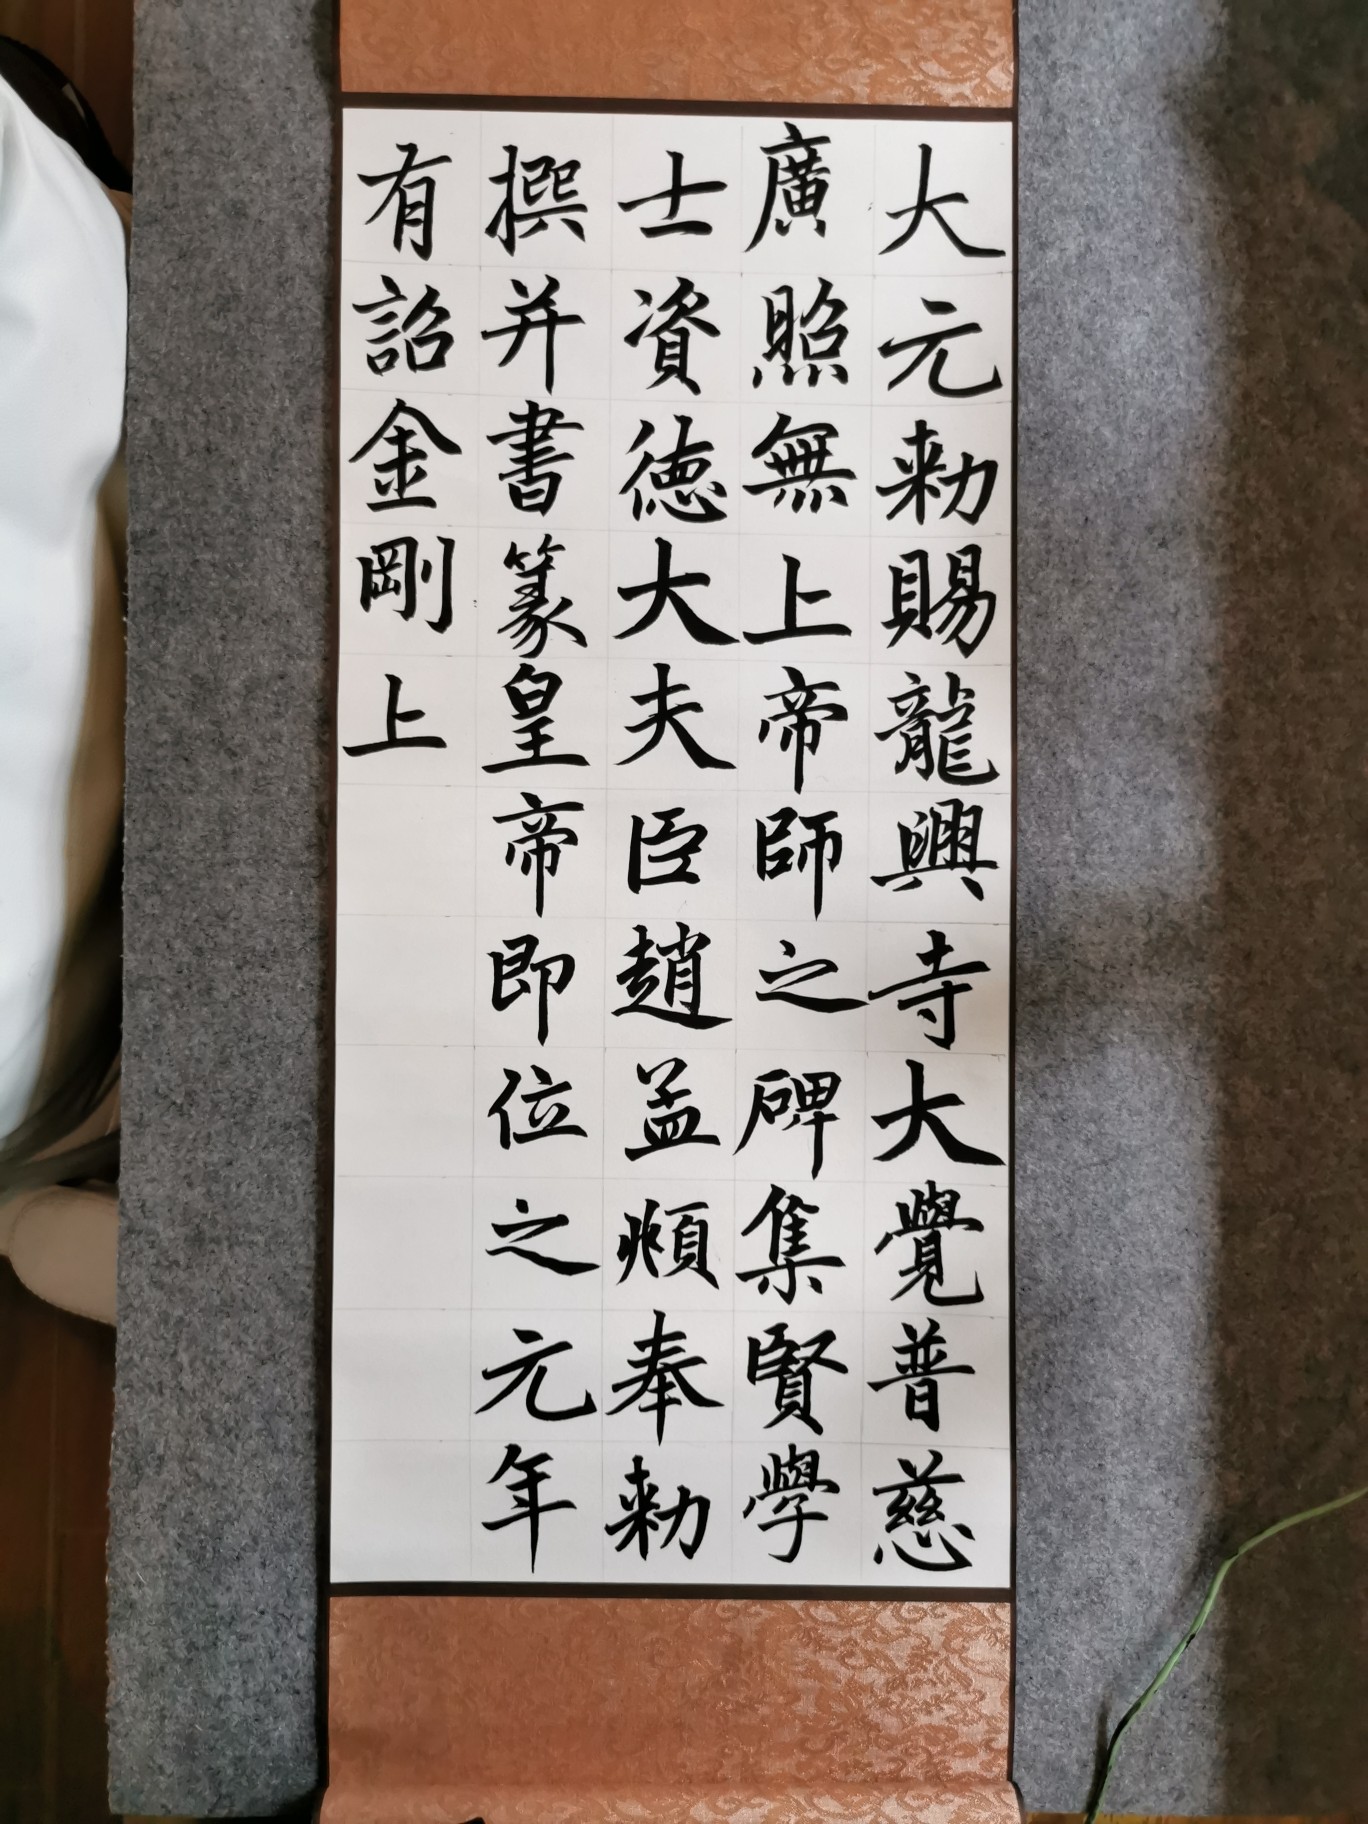 大元勅賜龍興寺大覺普慈
廣照無上帝師之碑集賢學
士資德大夫臣趙孟頫奉勅
撰并書篆皇帝即位之元年
有詔金剛上